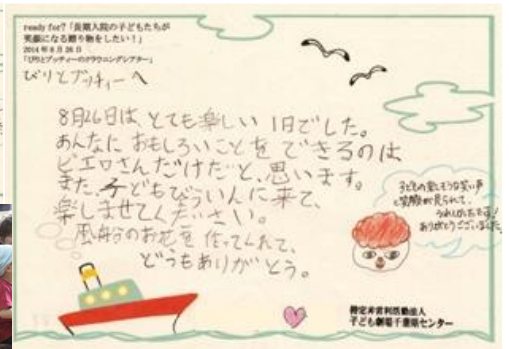 ready for?「長期入院の子どもたちが
笑顔になる贈り物をしたい！」
2014年8月26日
「びりとブッチィーのクラウニングシアター」
びりとブッチィーへ
8月26日は、とても楽しい1日でした。
あんなにおもしろいことをできるのは
ピエロさんだけだと、思います。
また、子どもびょういんに来て、
楽しませてください。
風船のお花を作ってくれて、
どうもありがとう。
子どもの楽しそうな笑い声
と笑顔が見られて、
うれしかったです！
ありがとうございました。
特定非営利活動法人
子ども劇場千葉県センター